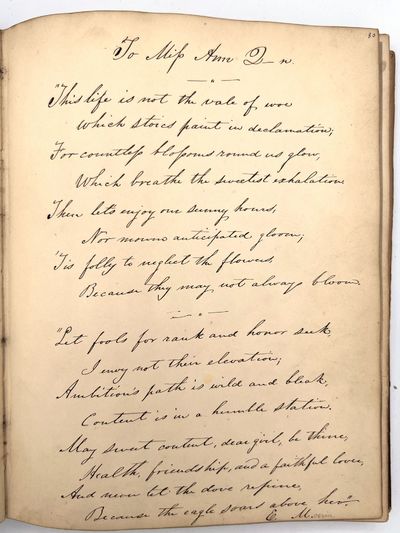 30
To Miſs Ann D—n.
"This life is not the vale of woe
Which stoics paint in declamation;
For countleſs bloſsoms round us glow,
Which breathe the sweetest exhalation
Then let's enjoy our sunny hours,
Nor mourn anticipated gloom;
'Tis folly to neglect the flowers,
Because they may not always bloom.
"Let fools for rank and honor seek,
I envy not their elevation;
Ambition's path is wild and bleak,
Content is in a humble station.
May sweet content, dear girl, be thine,
Health, friendship, and a faithful lover,
And never let the dove repine,
Because the eagle soars above her."
C.